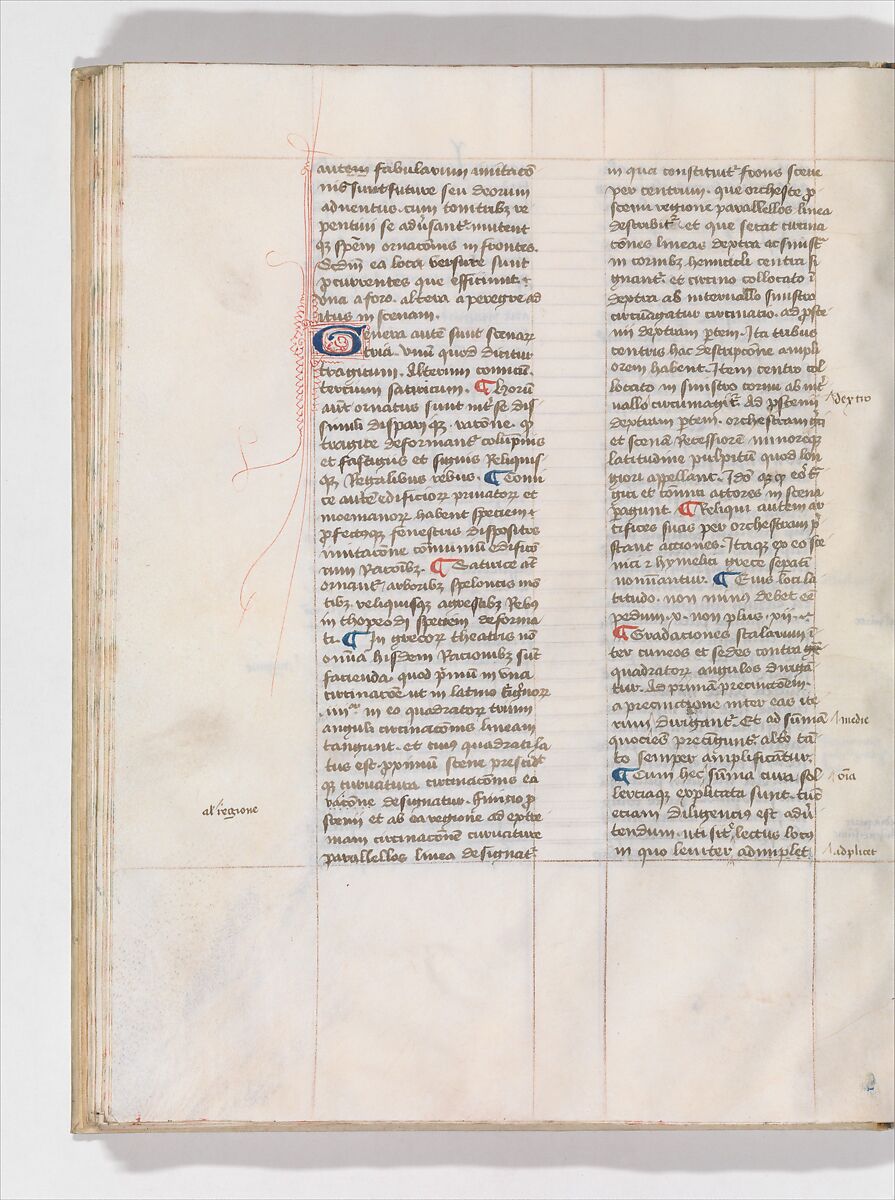 autem fabularum mutacō
nis sunt future seu deorum
aduentus. cum tonitrubꝫ re
pentini se adūsantᷣ mutent
qꝫ spēm ornacōnis in frontes.
Scdm̄ ea loca versure sunt
ꝓcurrentes que efficiunt.
vna a foro. altera a peregre ad
itus in scenam.
Genera autē sunt scenarꝝ
tria. vnū quod dicitur
tragicum. Alterum comicū.
tercium satiricum. ¶ Horū
aūt ornatus sunt int̓ se dis
simili dispariqꝫ racōne. qꝫ
tragice deformantᷣ colūpnis
et fastigiis et signis Reliquis
qꝫ Regalibus rebus. ¶ Comi
ce autē edificiorꝝ priuatorꝝ et
moenianorꝝ habent speciem
ꝓfectꝰqꝫ fenestris dispositos
imitacōne cōmuniū edifici
orum racōibꝫ. ¶ Satirice āt
ornantᷣ arboribꝫ speloncis mō
tibꝫ. reliquisqꝫ agrestibꝫ Rebꝰ
in thopeodi speciem deforma
ti. ¶ In grecorꝝ theatris nō
omīa hisdem Racionibꝫ sūt
facienda. quod p̓mū in yma
circinacōe. ut in latino t̓gōnorꝝ
.iiijᵒʳ. in eo quadratorꝝ trium
anguli circinacōnis lineam
tangunt. et cuius quadrati la
tus est ꝓximū scene prescidit
qꝫ curuatura circinacōnis ea
racōne designatur. Finicio ꝓ
scenii et ab ea regione ad extre
mam circinacōnē curuature
parallellos linea designatᷣ.
al' regione
in qua constituitᷣ frons scene
per centrum. que orchestre ꝓ
scenii regione parallellos linea
describitᷣ. et que secat circina
cōnes lineas dextra ac sinistͣ
in cornibꝫ hemicicli centra si
gnantᷣ. et circino collocato ī
dextra ab interuallo sinistro
circūagatur circinacio. ad ꝓsce
nii dextram ꝑtem. Ita tribus
centris hac descripcōne ampli
orem habent. Item centro col
locato in sinistro cornu ab int̓
uallo circumagitᷣ. Ad ꝓscenii
dextro
dextram ꝑtem. orchestram gͥci
et scenā Recessiorē minoreqꝫ
latitudine pulpitū quod lon
giori appellant. Idō
gici et comici actores in scena
ꝑagunt. ¶ Reliqui autem ar
tifices suas per orchestram p̄
stant acciones. Itaqꝫ ex eo sce
nici ⁊ hymelici grece sepatī
nominantur. ¶ Eius loci la
titudo. non minus debet eē
pedum .x. non plus .xii.
¶ Gradaciones scalarum ī
ter cuneos et sedes contra
quadratorꝝ angulos diriga
tur. Ad primā precinctōem.
a precinctione inter eas ite
rum dirigantᷣ. Et ad sūmā
medie
quocies precīguntᷣ alto tā
to semper amplificātur.
¶ Cum hec sūma cura sol
oīa
lerciaqꝫ explicata sunt. tūc
eciam diligencius est adū
tendum. uti sit lectus locꝰ
in quo leniter adimplet
adplicet